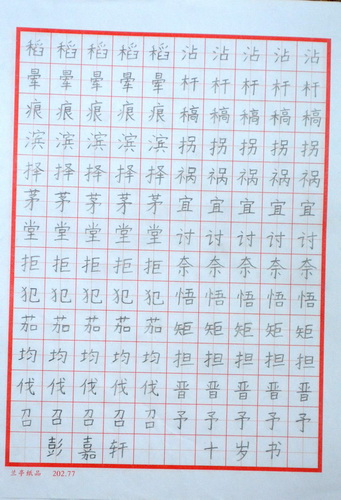 稻稻稻稻稻沾沾沾沾沾
晕晕晕晕晕杆杆杆杆杆
痕痕痕痕痕槁槁槁槁槁
滨滨滨滨滨拐拐拐拐拐
择择择择择祸祸祸祸祸
茅茅茅茅茅宜宜宜宜宜
堂堂堂堂堂讨讨讨讨讨
拒拒拒拒拒奈奈奈奈奈
犯犯犯犯犯悟悟悟悟悟
茄茄茄茄茄矩矩矩矩矩
均均均均均担担担担担
伐伐伐伐伐晋晋晋晋晋
召召召召召予予予予予
彭嘉轩十岁书
兰亭纸品 202.77